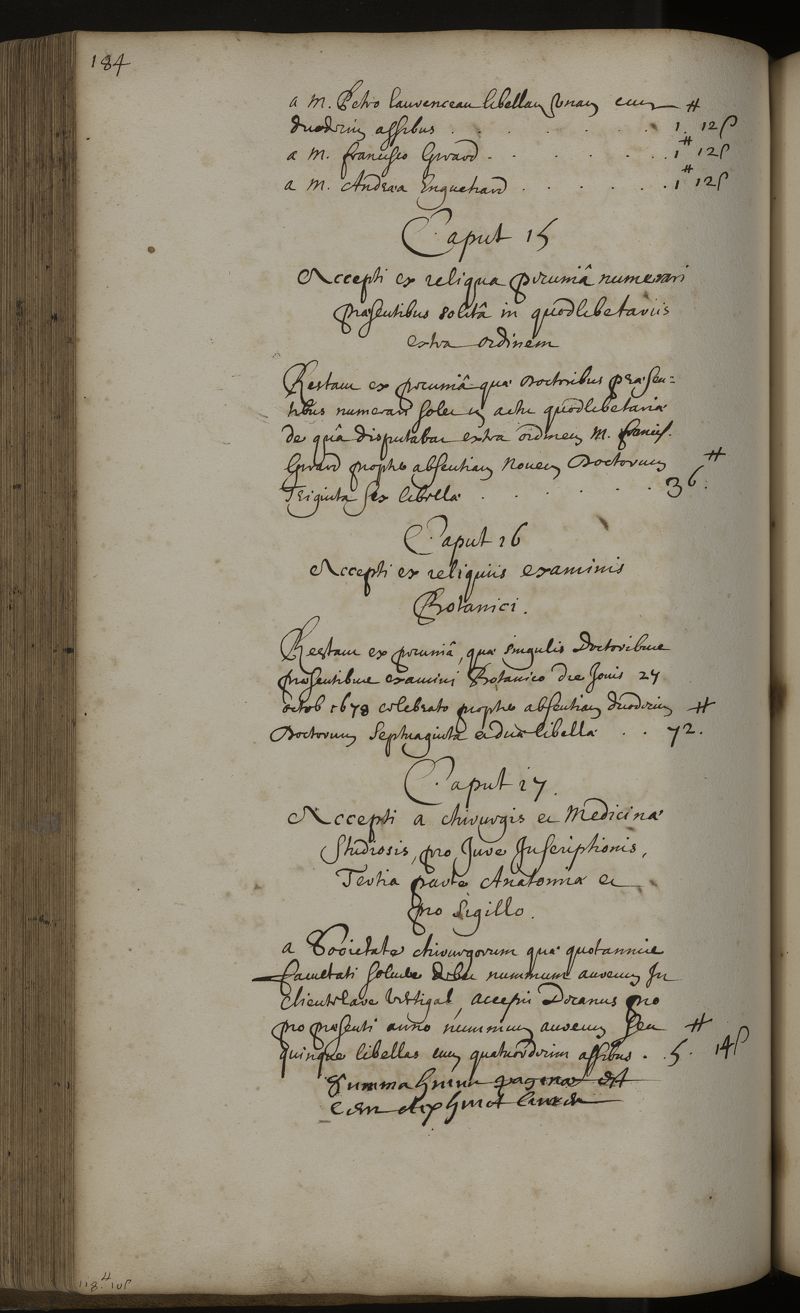 184
a M. Petro Lauvenceau libellam unam cum ₶
duodecim assibus . . . . . . 1. 12ſ
a M. francisco Girard . . . . . . 1₶ 12ſ
a M. Andrea Enguehard . . . . . . 1₶ 12ſ
Caput 15
Accepti ex reliqua pecuniâ numerari
præsentibus solitâ in quodlibetariis
extra ordinem
Restant ex pecuniâ quæ Doctoribus præsen=
tibus numerari solet in actu quodlibetariæ
de quâ disputabat extra ordinem M. francis.
Girard propter absentiam Novem Doctorum ₶
Triginta sex libellæ . . . . . . 36.
Caput 16
Accepti ex reliquiis examinis
Botanici.
Restant ex pecuniâ, quæ singulis Doctoribus
præsentibus examini Botanico die Jovis 27
octob 1678 celebrato propter absentiam duodecim ₶
Doctorum Septuaginta et duæ libellæ . . 72.
Caput 17.
Accepti a chirurgis et Medicinæ
Studiosis, pro Jure Inscriptionis,
Tertia parte Anatomiæ et
pro Sigillo.
a Societate chirurgorum quæ quotannis
facultati solvere debet nummum aureum In
Clientelare vectigal, accepit Decanus pro
pro præsenti anno nummum aureum seu ₶
quinque libellas cum quatuordecim assibus . 5. 14ſ
Summa huius paginæ est
118.₶ 10ſ